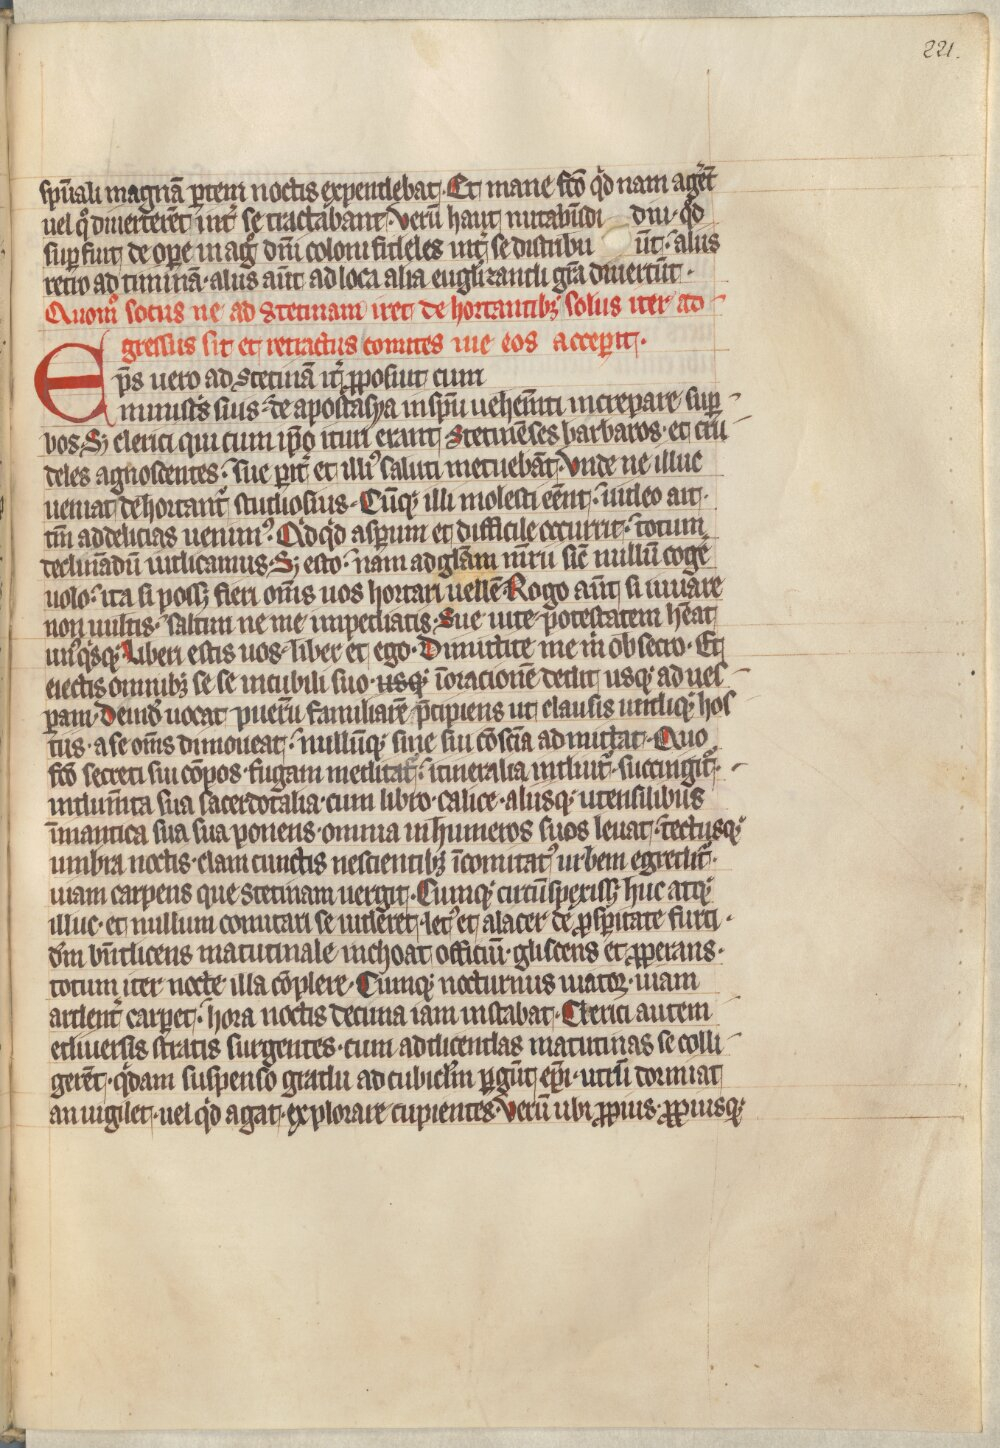 221.
spūali magnā ꝑtem noctis expendebat. Et mane fcō qͥd nam ageret̄
uel qͦ diuerterēt int̄ se tractabant. Verū haut mutabūdi diu. qͥd
suꝑfuit de oꝑe magͥ dn̄i coloni fideles int̄ se distribuūt. alius
retro ad timinā. alius aūt ad loca alia eugłizandi gr̄a diuertūt.
Quomͦ socius ne ad Stetinam iret de hortantibꝫ solus iter ad
gressus sit et retractus comites uie eos acceperit.
Ep̄s uero ad Stetinā it̄ ꝓposuit cum
ministͥs suis. de apostasya in spū uehem̄ti increpare suꝑ
bos. Sꝫ clerici qui cum ip̄o ituri erant Stetinēses barbaros. et cru
deles agnoscentes. sue ꝑit̄ et illiꝰ saluti metuebāt. Vnde ne illuc
ueniat dehortant̄ studiosius. Cūqꝫ illi molesti eēnt. uideo ait.
tm̄ ad delicias uenimꝰ. Qͥdqͥd asꝑum et difficile occurrit. totum
declinādū iudicamus. Sꝫ esto. nam ad głam m̄rii sic̄ nullū coge
uolo. ita si possꝫ fieri om̄s uos hortari uellē. Rogo aūt si iuuare
non uultis. saltim ne me impediatis. Sue uite potestatem heāt
unꝰqͥsqꝫ. Liberi estis uos. liber et ego. Dimittite me m̄ obsecro. Et
eiectis omnibꝫ se se in cubili suo usqꝫ ī oracionē dedit usqꝫ ad ues
ꝑam. Deinde uocat pueꝝ familiarē p̄cipiens ut clausis undiqꝫ hos
tiis. a se om̄s dimoueat. nullūqꝫ sine sui cōsc̄ia admittat. Quo
fcō secreti sui cōpos. fugam meditat̄. itineralia induit̄. succingit̄.
indum̄ta sua sacerdotalia. cum libro. calice. aliisqꝫ utensilibus
ī mantica sua sua ponens. omnia in humeros suos leuat. tectusqꝫ
umbra noctis. clam cunctis nescientibꝫ īcomitatꝰ urbem egredit̄.
uiam carpens que Stetinam uergit. Cumqꝫ circūspexissꝫ huc atqꝫ
illuc. et nullum comitari se uideret. letꝰ et alacer de ꝓsꝑitate furti.
dm̄ bn̄dicens matutinale inchoat officiū. gliscens et ꝓꝑans.
totum iter nocte illa cōplere. Cumqꝫ nocturnus uiator. uiam
ardent̄ carꝑet. hora noctis decima iam instabat. Clerici autem
ediuersis stratis surgentes. cum ad dicendas matutinas se colli
gerēt. qͥdam suspenso gradu ad cubiclm̄ ꝑgūt ep̄i. utrū dormiat
an uigilet. uel qͥd agat. explorare cupientes. Verū ubi ꝓpius. ꝓpiusqꝫ